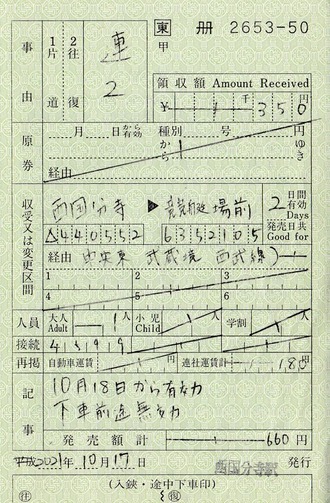 東 冊 2653-50
甲
事由 1片道 2往復 連 2
領収額 Amount Received
¥ 千 350円
原券 月 日から有効 種別 号 円
から 1 ゆき
経由
収受又は変更区間 西国分寺 ▶ 競艇場前 2日間有効 Days
440552 6352105 発売日共 Good for
経由 中央東 武蔵境 西武線
1 2 3
4 5 6
人員 大人 Adult 1人 小児 Child 人 学割 人
接続 43199
再掲 自動車運賃 円 連社運賃計 180円
記事 10月18日から有効
下車前途無効
発売額計 660円
平成2021年10月17日 西国分寺駅 発行
(入鋏・途中下車印)
注 復